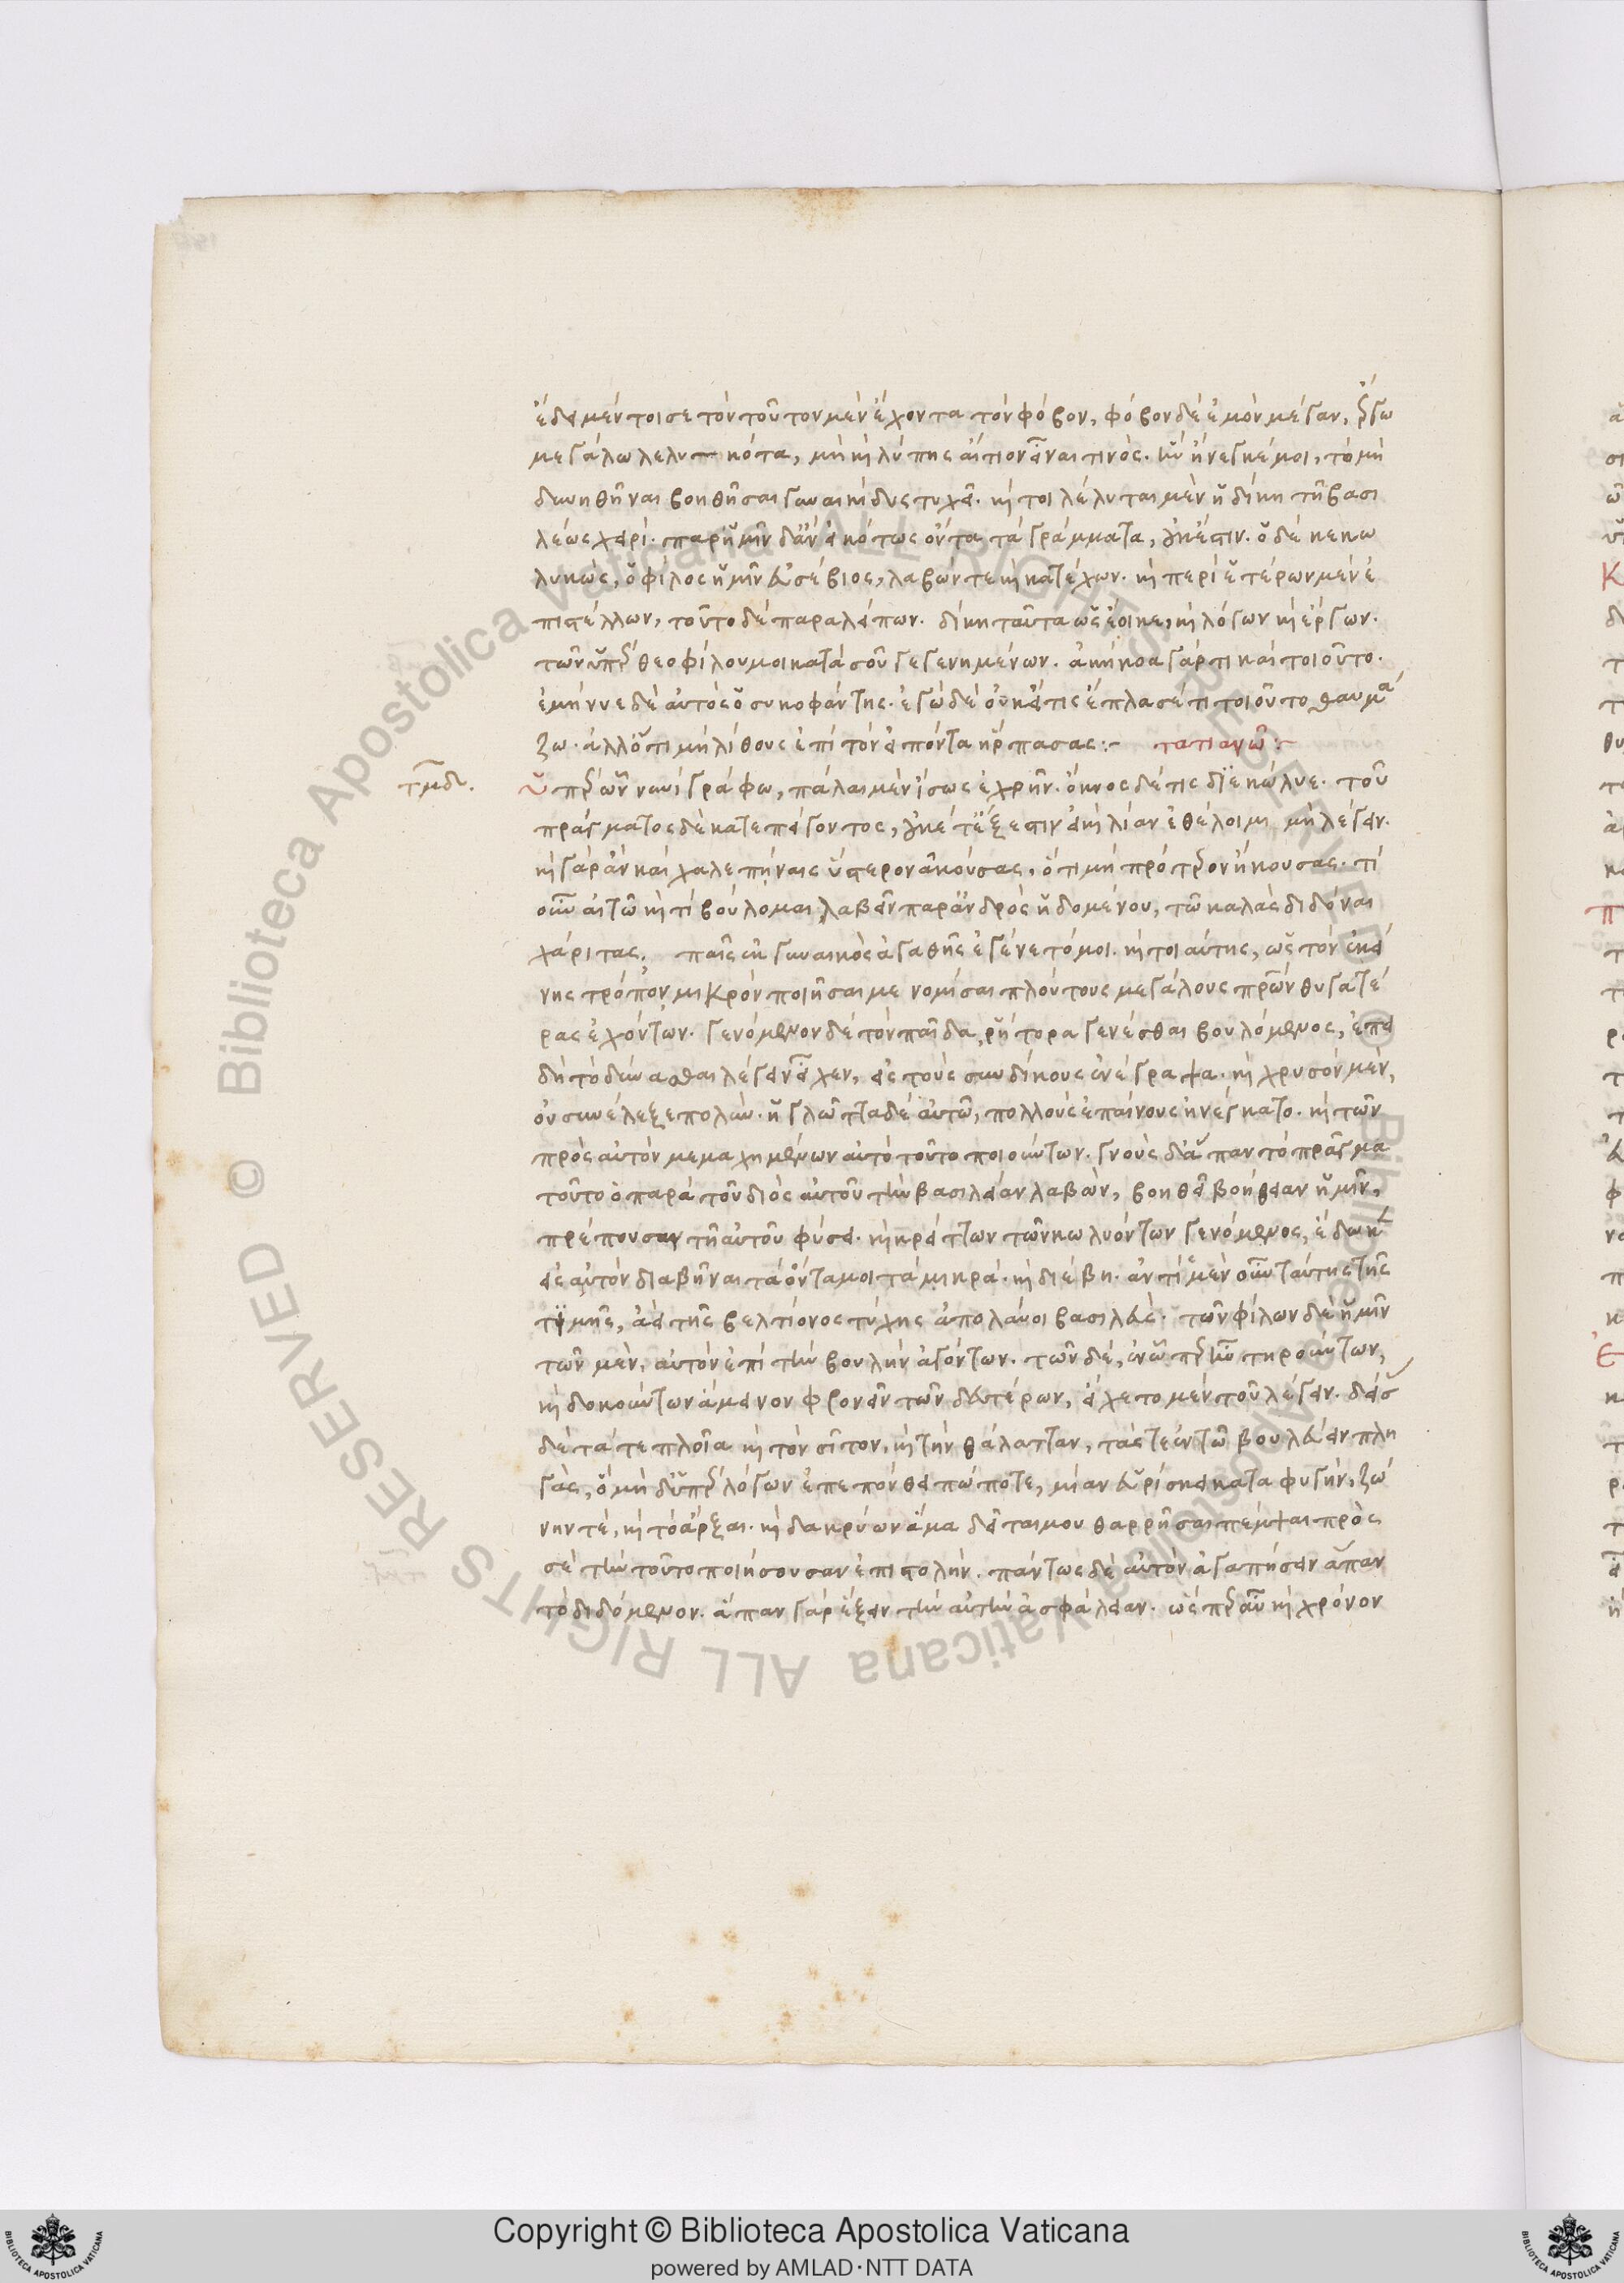 ἔδει μέν τοι σε τὸν τοῦτον μὲν ἔχοντα τὸν φόβον, φόβον δὲ ἐμὸν μέγαν, ἔργω
μεγάλω λελυκότα, μὴ καὶ λύπης αἴτιον εἶναι τινός. ἣν ἤνεγκέ μοι, τὸ μὴ
δυνηθῆναι βοηθῆσαι γυναικὶ δυστυχεῖ. καί τοι λέλυται μὲν ἡ δίκη τῆ βασι
λέως χειρί. παρ' ἡμῖν δ' ἂν εἰκότως ὄντα τὰ γράμματα, οὐκ ἔστιν. ὁ δὲ κεκω
λυκὼς, ὁ φίλος ἡμῖν εὐσέβιος, λαβών τε καὶ κατέχων. καὶ περὶ ἑτέρων μὲν ἐ
πιστέλλων, τοῦτο δὲ παραλείπων. δίκη ταῦτα ὡς ἔοικε, καὶ λόγων καὶ ἔργων.
τῶν ὑπὲρ θεοφίλου μοι κατὰ σοῦ γεγενημένων. ἀκήκοα γάρ τι καὶ τοιοῦτο.
ἐμήνυε δὲ αὐτὸς ὁ συκοφάντης. ἐγὼ δὲ οὐκ εἴ τις ἔπλασέ τι τοιοῦτο θαυμά
ζω. ἀλλ' ὅτι μὴ λίθους ἐπὶ τὸν εἰπόντα ἥρπασας :- τατιανῶ :-
τμδ. ὑπὲρ ὧν νυνὶ γράφω, πάλαι μὲν ἴσως ἐχρῆν. ὄκνος δέ τις διεκώλυε. τοῦ
πράγματος δὲ κατεπείγοντος, οὐκέτ' ἔξεστιν εἰ καὶ λίαν ἐθέλοιμι μὴ λέγειν.
καὶ γὰρ ἂν καὶ χαλεπήναις ὕστερον ἀκούσας, ὅτι μὴ πρότερον ἤκουσας. τί
οὖν αἰτῶ καὶ τί βούλομαι λαβεῖν παρ' ἀνδρὸς ἡδομένου, τῶ καλὰς διδόναι
χάριτας. παῖς ἐκ γυναικὸς ἀγαθῆς ἐγένετό μοι. καὶ τοιαύτης, ὡς τὸν ἐκεί
νης τρόπον μικρὸν ποιῆσαί με νομίσαι πλούτους μεγάλους παρ' ὧν θυγατέ
ρας ἐχόντων. γενόμενον δὲ τὸν παῖδα, ῥήτορα γενέσθαι βουλόμενος, ἐπει
δὴ τὸ δύνασθαι λέγειν εἶχεν, εἰς τοὺς συνδίκους ἐνέγραψα. καὶ χρυσὸν μὲν,
οὐ συνέλεξε πολύν. ἡ γλῶττα δὲ αὐτῶ, πολλοὺς ἐπαίνους ἠνέγκατο. καὶ τῶν
πρὸς αὐτὸν μεμαχημένων αὐτὸ τοῦτο ποιούντων. γνοὺς δ' ἅπαν τὸ πρᾶγμα
τοῦτο ὁ παρὰ τοῦ διὸς αὐτοῦ τὴν βασιλείαν λαβὼν, βοηθεῖ βοήθειαν ἡμῖν,
πρέπουσαν τῆ αὐτοῦ φύσει. καὶ κρείττων τῶν κωλυόντων γενόμενος, ἔδωκεν
εἰς αὐτὸν διαβῆναι τὰ ὄντα μοι τὰ μικρά. καὶ διέβη. ἀντὶ μὲν οὖν ταύτης τῆς
τιμῆς, ἀεὶ τῆς βελτίονος τύχης ἀπολαύοι βασιλεύς. τῶν φίλων δὲ ἡμῖν
τῶν μὲν, αὐτὸν ἐπὶ τὴν βουλὴν ἀγόντων. τῶν δὲ, ἐν ὧπερ ἦν τηρούντων,
καὶ δοκούντων ἄμεινον φρονεῖν τῶν δευτέρων, εἴχετο μὲν τοῦ λέγειν. δείσας
δὲ τά τε πλοῖα καὶ τὸν σῖτον, καὶ τὴν θάλατταν, τάς τε ἐν τῶ βουλεύειν πλη
γὰς, ὃ μὴ δ' ὑπὲρ λόγων ἐπεπόνθει πώποτε, μίαν εὑρίσκει καταφυγὴν, ζώ
νην τὲ, καὶ τὸ ἄρξαι. καὶ δακρύων ἅμα δεῖταί μου θαρρῆσαι πέμψαι πρὸς
σὲ τὴν τοῦτο ποιήσουσαν ἐπιστολήν. πάντως δὲ αὐτὸν ἀγαπήσειν ἅπαν
τὸ διδόμενον. ἅπαν γὰρ ἕξειν τὴν αὐτὴν ἀσφάλειαν. ὥσπερ αὖ καὶ χρόνον
Copyright © Biblioteca Apostolica Vaticana
powered by AMLAD·NTT DATA